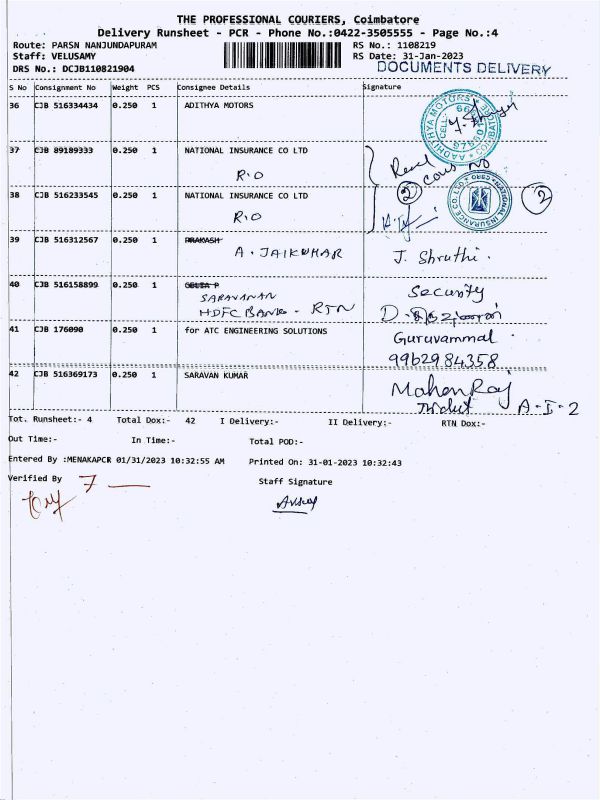 THE PROFESSIONAL COURIERS, Coimbatore
Delivery Runsheet - PCR - Phone No.:0422-3505555 - Page No.:4
Route: PARSN NANJUNDAPURAM RS No.: 1108219
Staff: VELUSAMY RS Date: 31-Jan-2023
DRS No.: DCJB110821904 DOCUMENTS DELIVERY
S No Consignment No Weight PCS Consignee Details Signature
36 CJB 516334434 0.250 1 ADITHYA MOTORS
37 CJB 89189333 0.250 1 NATIONAL INSURANCE CO LTD
R.O
38 CJB 516233545 0.250 1 NATIONAL INSURANCE CO LTD
R.O
2
39 CJB 516312567 0.250 1 PRAKASH
A. JAIKUMAR J. Shruthi.
40 CJB 516158899 0.250 1
SARAVANAN Security
HDFC BANK - RTN
41 CJB 176090 0.250 1 for ATC ENGINEERING SOLUTIONS
Guruvammal
9962984358
42 CJB 516369173 0.250 1 SARAVAN KUMAR
Mahen Raj
A-I-2
Tot. Runsheet:- 4 Total Dox:- 42 I Delivery:- II Delivery:- RTN Dox:-
Out Time:- In Time:- Total POD:-
Entered By :MENAKAPCR 01/31/2023 10:32:55 AM Printed On: 31-01-2023 10:32:43
Verified By Staff Signature
7